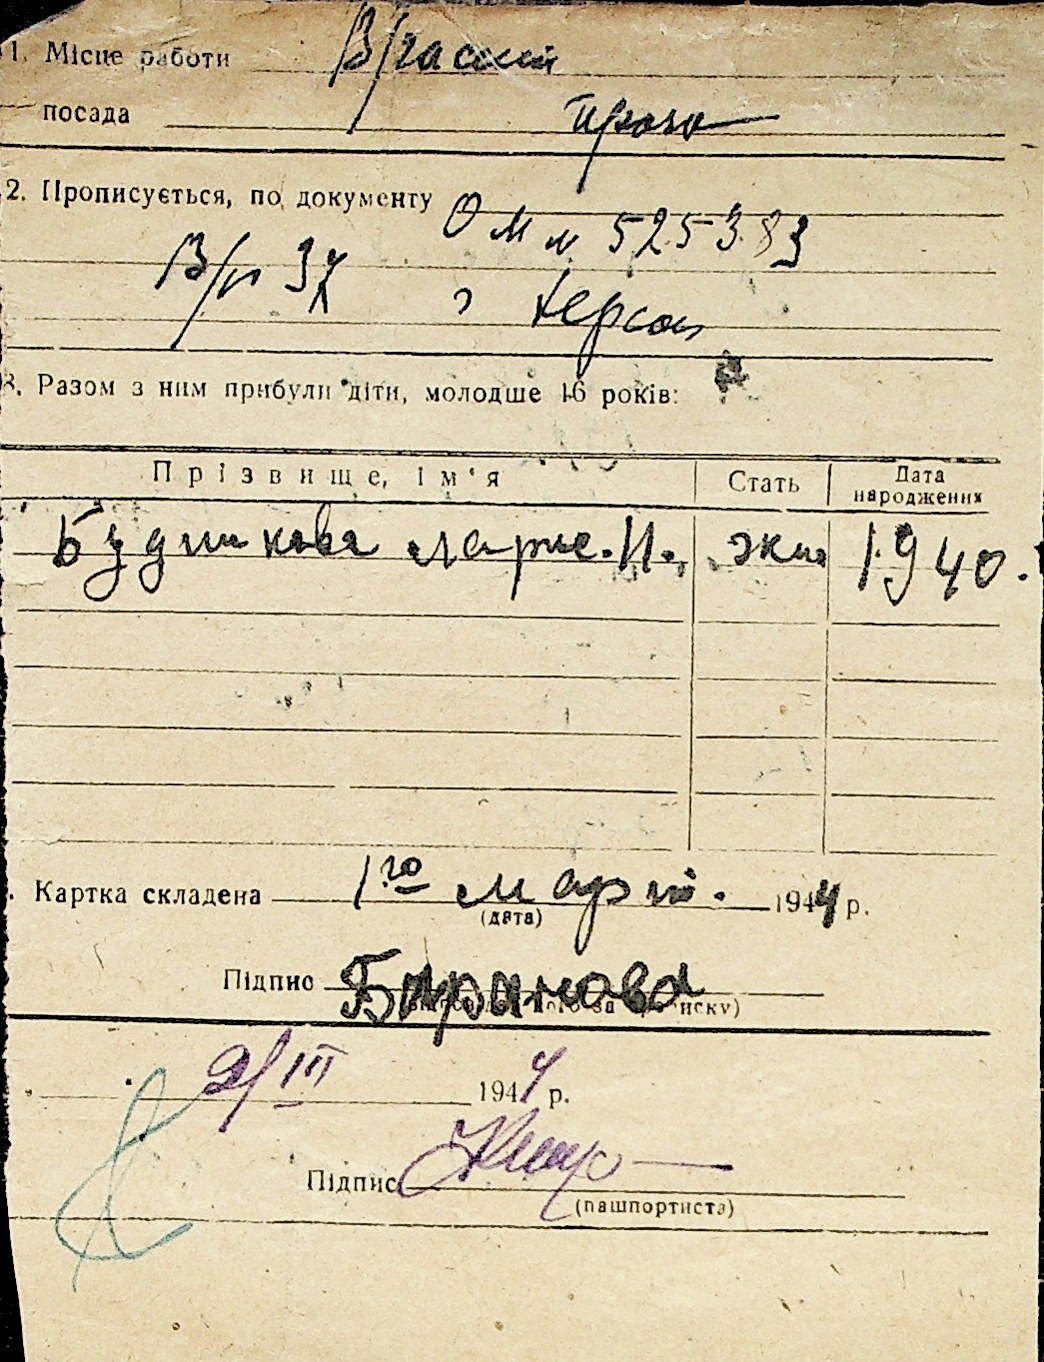 1. Місце работи В/часті
посада
2. Прописується, по документу О М М 525383
В/ч 37 г Херсон
3. Разом з ним прибули діти, молодше 16 років:
Прізвище, ім'я Стать Дата народження
Будникова И. 1940.
Картка складена 1го март. 1944 р.
(дата)
Підпис Баранова
2/III 1944 р.
Підпис
(пашпортиста)